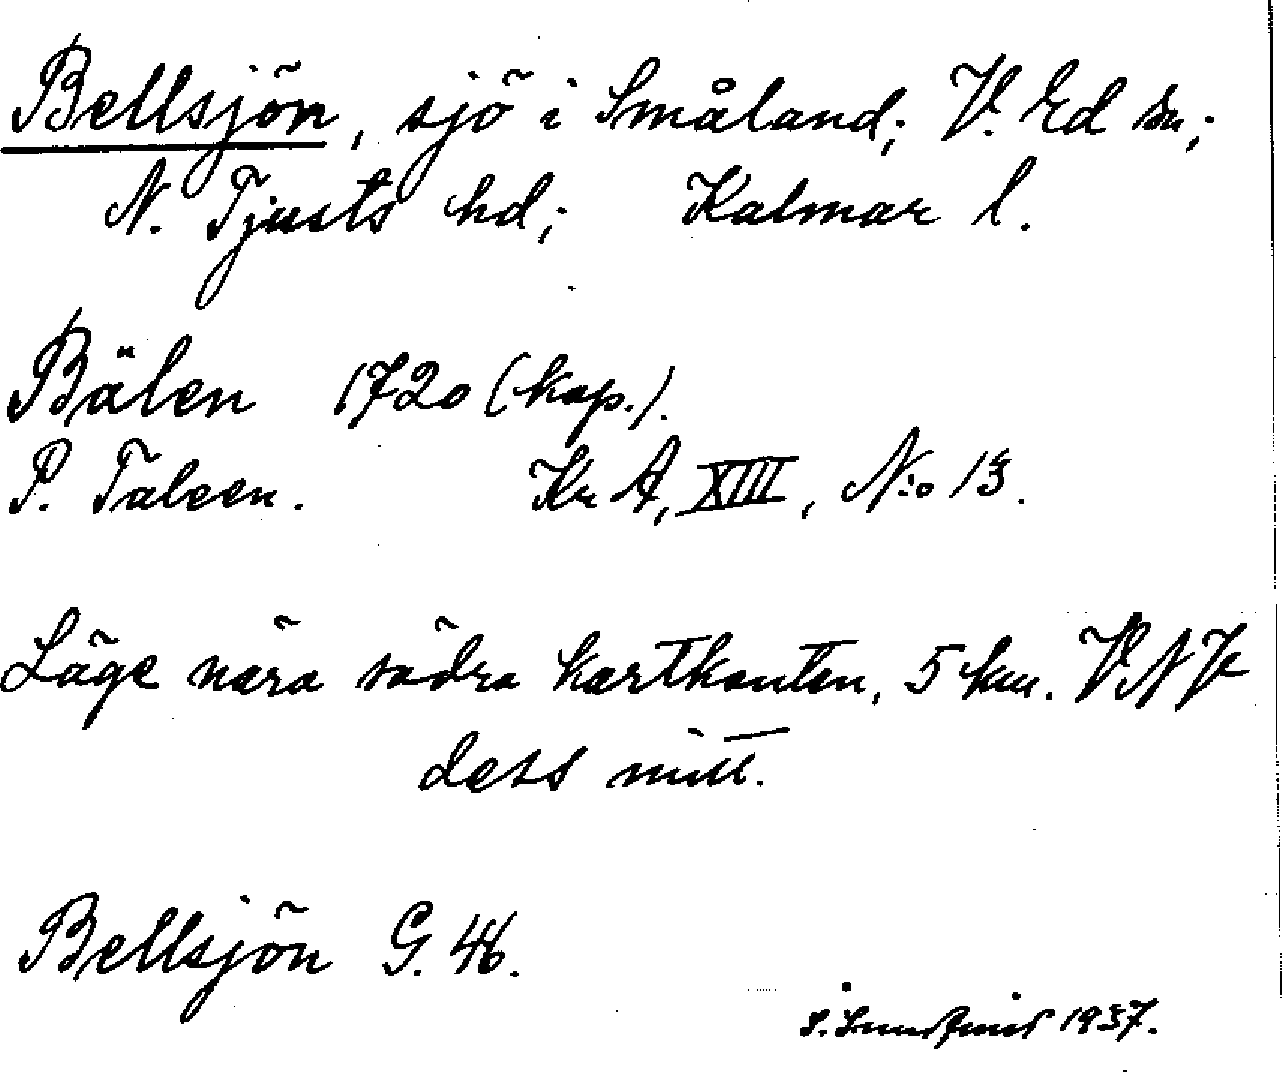 Bellsjön, sjö i Småland; V. Ed sn;
N. Tjusts hd; Kalmar l.
Bälen 1720 (kop.).
P. Taleen. Kr A, XIII, N:o 13.
Läge nära södra kartkanten, 5 km. V
dess mitt.
Bellsjön G. 46.
1937.